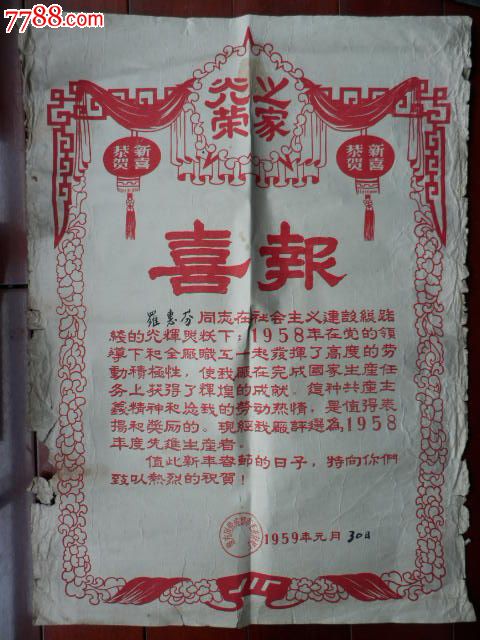 7788.com
光荣
之家
恭贺
新喜
恭贺
新喜
喜報
羅惠芬同志在社会主义建設総路
綫的光輝照耀下：1958年在党的領
導下和全厰職工一起發揮了高度的劳
動積極性，使我厰在完成國家生産任
务上获得了輝煌的成就。這种共産主
義精神和忘我的劳动热情，是值得表
揚和奬励的。現經我厰評選為，1958
年度先進生産者。
值此新年春節的日子，特向你們
致以熱烈的祝賀！
1959年元月30日